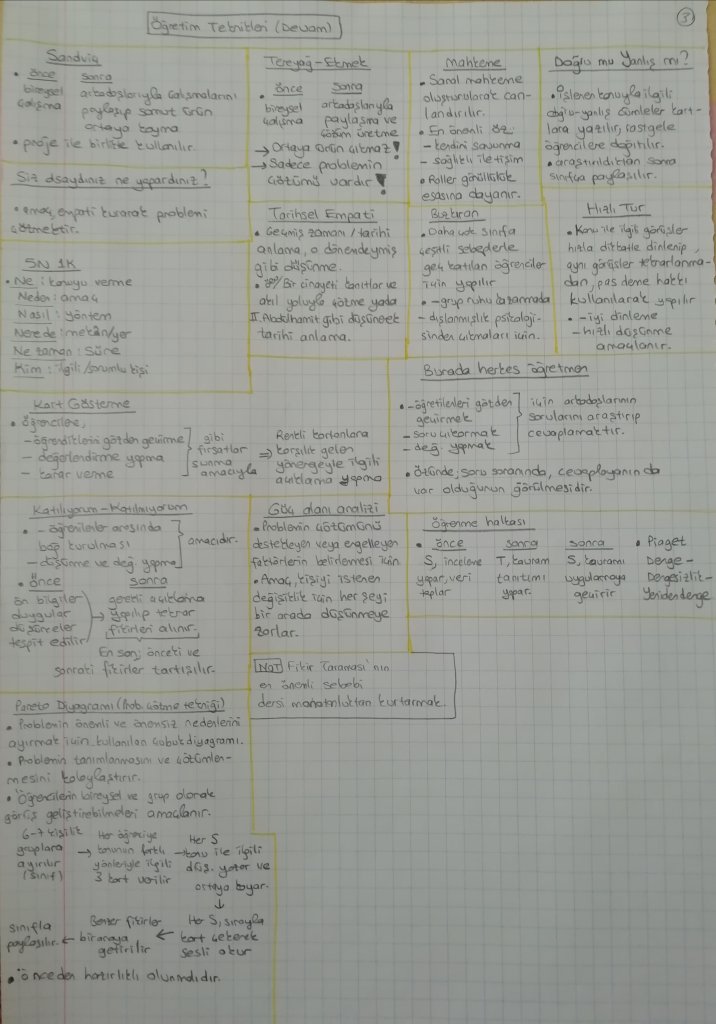 Öğretim Teknikleri (Devam)
3
Sandviç
• önce sonra
bireysel arkadaşlarıyla çalışmalarını
çalışma paylaşıp somut ürün
ortaya koyma
• proje ile birlikte kullanılır.
Siz olsaydınız ne yapardınız?
• amaç, empati kurarak problemi
çözmektir.
5N 1K
• Ne : konuyu verme
Neden : amaç
Nasıl : Yöntem
Nerede : mekân/yer
Ne zaman : Süre
Kim : ilgili/sorumlu kişi
Tereyağ-Ekmek
• önce sonra
bireysel arkadaşlarıyla
çalışma paylaşma ve
çözüm üretme
→ Ortaya ürün çıkmaz!
→ Sadece problemin
çözümü vardır!
Tarihsel Empati
• Geçmiş zamanı/tarihi
anlama, o dönemdeymiş
gibi düşünme.
• Bir cinayeti kanıtlar ve
akıl yoluyla çözme yada
II. Abdülhamit gibi düşünerek
tarihi anlama.
Mahkeme
• Sanal mahkeme
oluşturularak can-
landırılır.
• En önemli öz.
- kendini savunma
- sağlıklı iletişim
• Roller gönüllülük
esasına dayanır.
Buzkıran
• Daha çok sınıfa
çeşitli sebeplerle
geç katılan öğrenciler
için yapılır
• - grup ruhu kazanmada
- dışlanmışlık psikoloji-
sinden çıkmaları için.
Doğru mu Yanlış mı?
• İşlenen konuyla ilgili
doğru-yanlış cümleler kart-
lara yazılır, rastgele
öğrencilere dağıtılır.
• araştırıldıktan sonra
sınıfça paylaşılır.
Hızlı Tur
• Konu ile ilgili görüşler
hızla dikkatle dinlenip,
aynı görüşler tekrarlanma-
dan, pas deme hakkı
kullanılarak yapılır
• - iyi dinleme
- hızlı düşünme
amaçlanır.
Kart Gösterme
• Öğrencilere,
- öğrendiklerini gözden geçirme
- değerlendirme yapma
- karar verme
gibi
fırsatlar
sunma
amacıyla
⇒ Renkli kartonlara
karşılık gelen
yönergeyle ilgili
açıklama yapma
Burada herkes öğretmen
• - öğretilenleri gözden
geçirmek
- soru çıkarmak
- değ. yapmak
için arkadaşlarının
sorularını araştırıp
cevaplamaktır.
• Özünde; soru soranında, cevaplayanın da
var olduğunun görülmesidir.
Katılıyorum-Katılmıyorum
• - öğrenciler arasında
bağ kurulması
- düşünme ve değ. yapma
amacıdır.
• Önce sonra
ön bilgiler gerekli açıklama
duygular → yapılıp tekrar
düşünceler fikirleri alınır.
tespit edilir
En son; önceki ve
sonraki fikirler tartışılır.
Güç alanı analizi
• Problemin çözümünü
destekleyen veya engelleyen
faktörlerin belirlenmesi için
• Amaç, kişiyi istenen
değişiklik için her şeyi
bir arada düşünmeye
zorlar.
Öğrenme halkası
• önce sonra sonra • Piaget
S, inceleme T, kavram S, kavramı Denge-
yapar, veri tanıtımı uygulamaya Dengesizlik-
toplar yapar. geçirir Yeniden denge
NOT Fikir Taraması'nın
en önemli sebebi
dersi monotonluktan kurtarmak.
Pareto Diyagramı (Prob. çözme tekniği)
• Problemin önemli ve önemsiz nedenlerini
ayırmak için kullanılan çubuk diyagramı.
• Problemin tanımlanmasını ve çözümlen-
mesini kolaylaştırır.
• Öğrencilerin bireysel ve grup olarak
görüş geliştirebilmeleri amaçlanır.
6-7 kişilik Her öğrenciye Her S
gruplara → konunun farklı → konu ile ilgili
ayırılır yönleriyle ilgili düş. yazar ve
(sınıf) 3 kart verilir ortaya koyar.
↓
sınıfla Benzer fikirler Her S, sırayla
paylaşılır. ← bir araya ← kart çekerek
getirilir sesli okur
• Önceden hazırlıklı olunmalıdır.